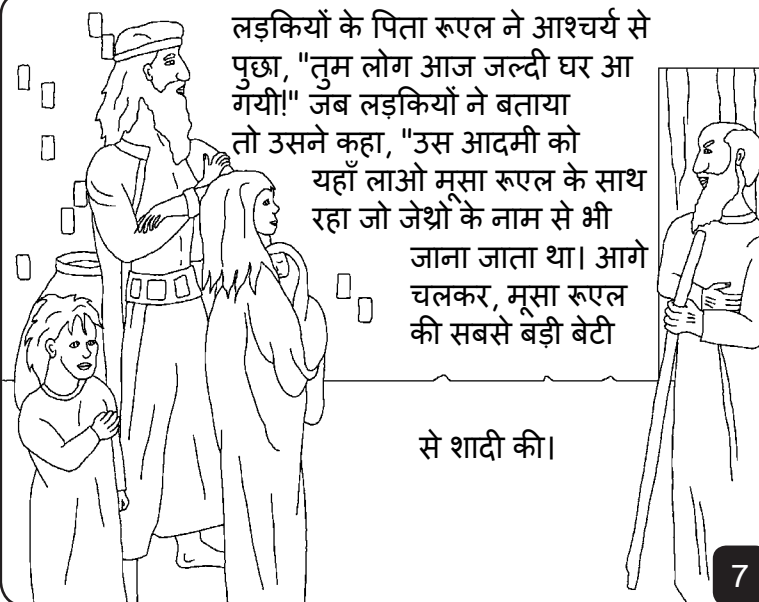 लड़कियों के पिता रूएल ने आश्चर्य से
पुछा, "तुम लोग आज जल्दी घर आ
गयी!" जब लड़कियों ने बताया
तो उसने कहा, "उस आदमी को
यहाँ लाओ मूसा रूएल के साथ
रहा जो जेथ्रो के नाम से भी
जाना जाता था। आगे
चलकर, मूसा रूएल
की सबसे बड़ी बेटी
से शादी की।
7